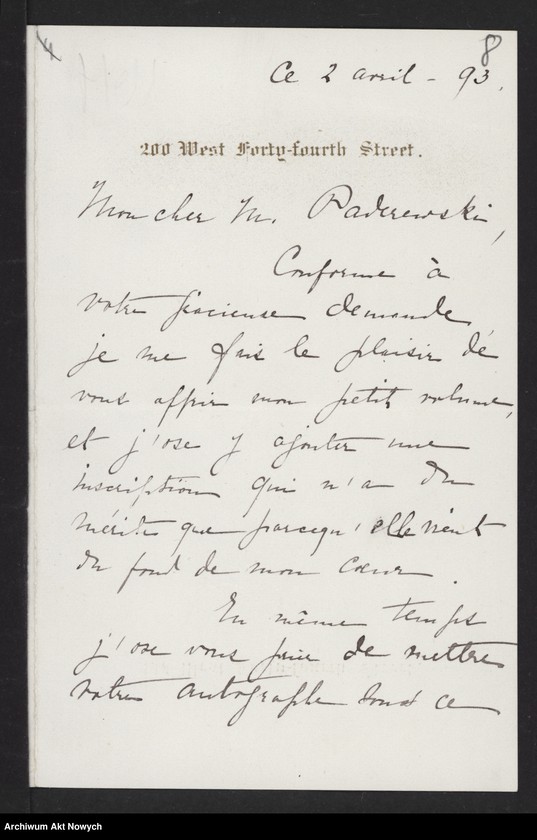 4
8
Ce 2 avril - 93.
200 West Forty-fourth Street.
Mon cher M. Paderewski,
Conforme à
votre gracieuse demande
je me fais le plaisir de
vous offrir mon petit volume,
et j'ose y ajouter une
inscription qui n'a du
mérite que parcequ'elle vient
du fond de mon cœur.
En même temps
j'ose vous prier de mettre
votre autographe sous ce
Archiwum Akt Nowych